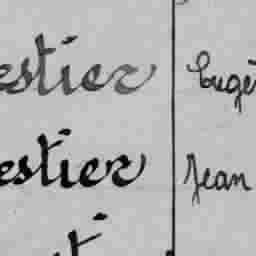 estier Eugè
estier Jean